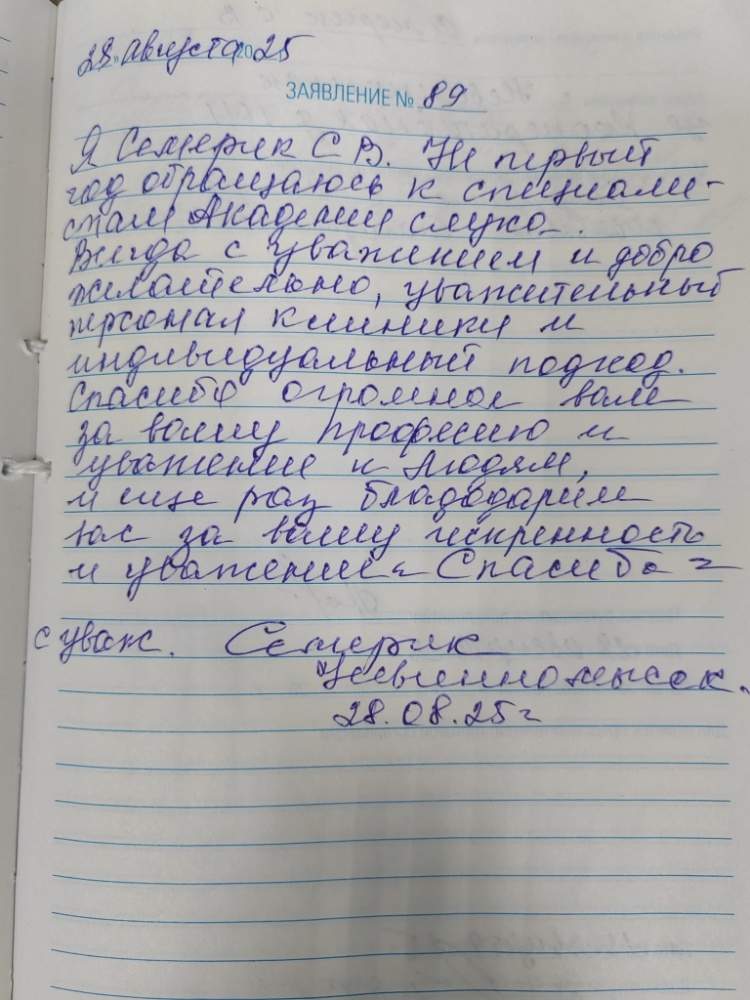 28 августа 2025
ЗАЯВЛЕНИЕ № 89
Я Семерик С В. Не первый
год обращаюсь к специали-
стам Академии слуха.
Всегда с уважением и добро
желательно, уважительный
персонал клиники и
индивидуальный подход.
Спасибо огромное вам
за вашу професию и
уважение к людям,
и еще раз благодарим
вас за вашу искренность
и уважение. Спасибо
с уваж. Семерик
Невинномысск.
28.08.25г